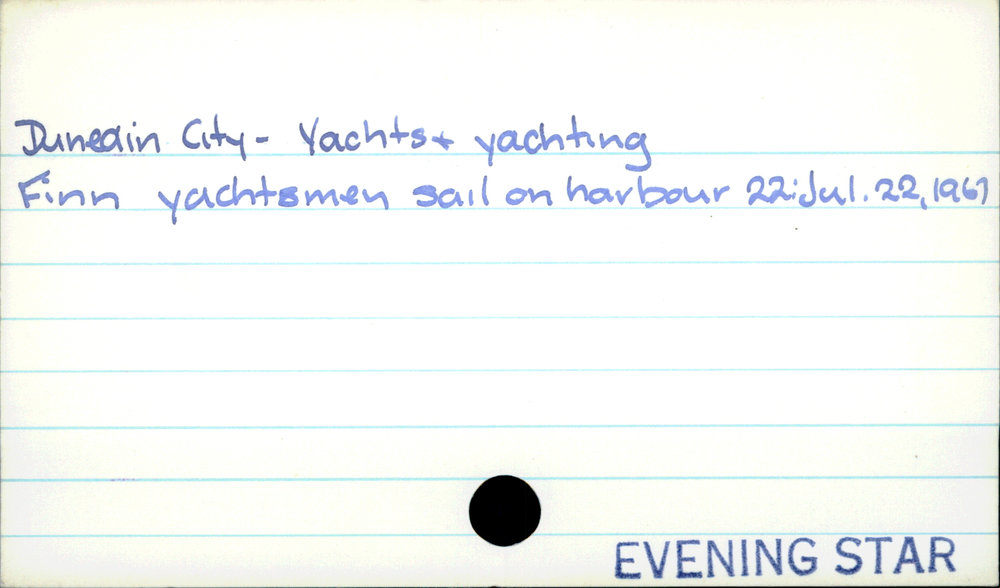 Dunedin City - Yachts + yachting
Finn yachtsmen sail on harbour 22:Jul. 22, 1967
EVENING STAR